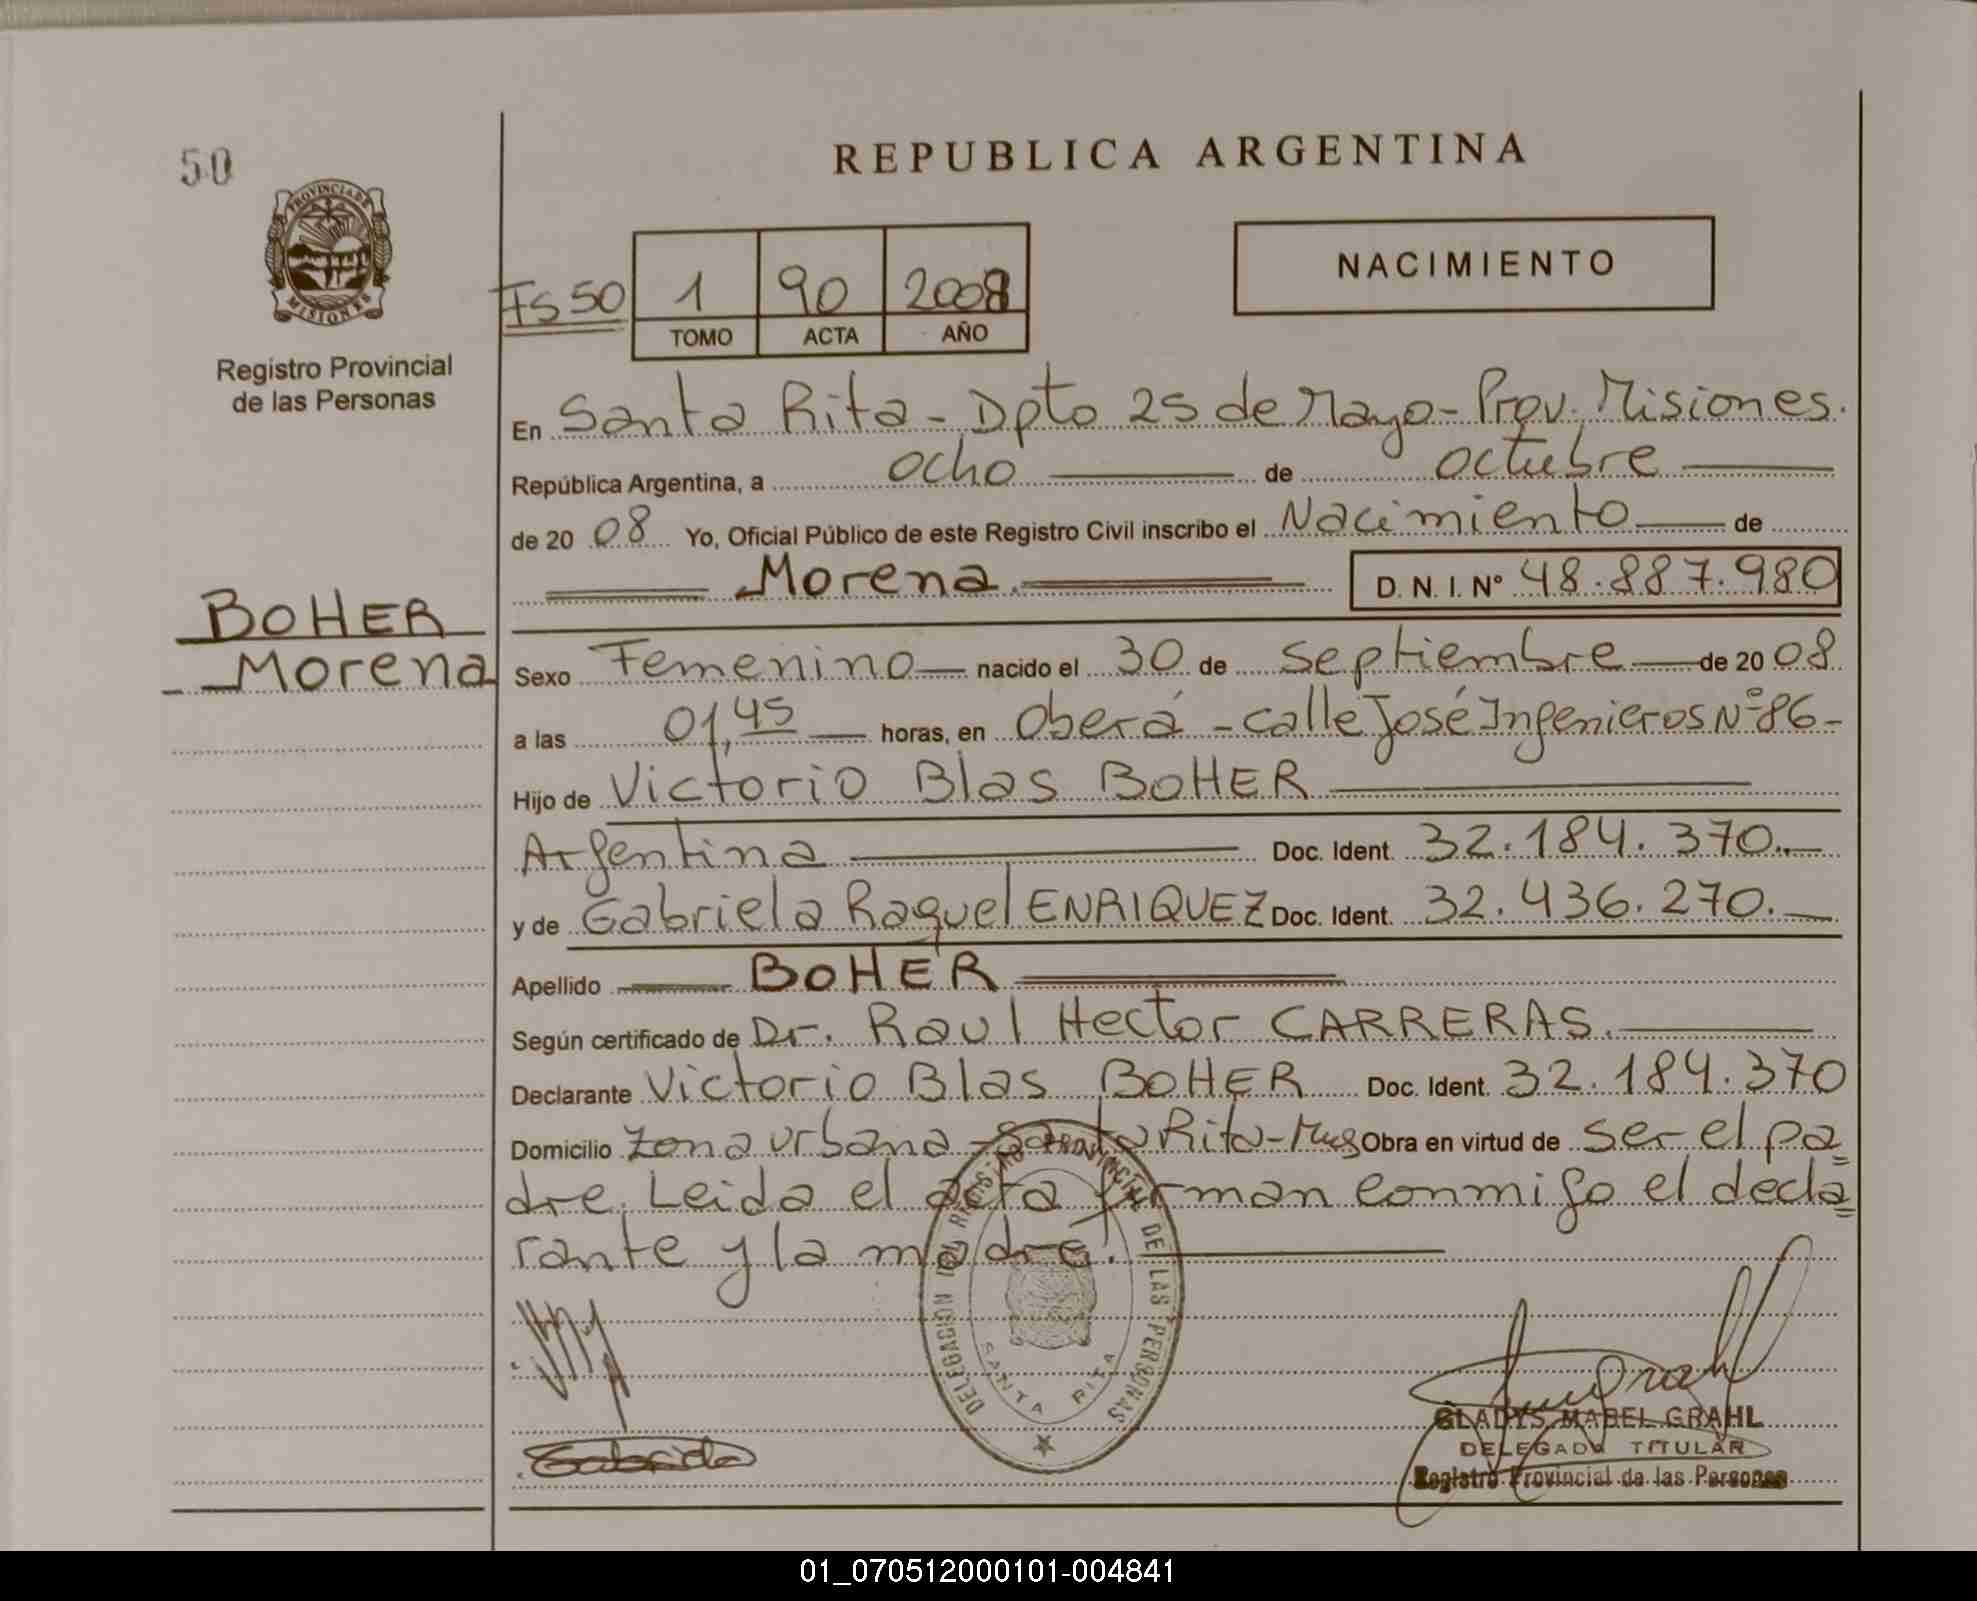 50
REPUBLICA ARGENTINA
PROVINCIA DE
MISIONES
Registro Provincial
de las Personas
Fs 50
1 90 2008
TOMO ACTA AÑO
NACIMIENTO
En Santa Rita - Dpto 25 de Mayo - Prov. Misiones.
República Argentina, a ocho de octubre
de 20 08 Yo, Oficial Público de este Registro Civil inscribo el Nacimiento de
Morena D. N. I. N° 48.887.980
BOHER
Morena
Sexo Femenino nacido el 30 de Septiembre de 20 08
a las 01,45 horas, en Oberá - calle José Ingenieros Nº 86 -
Hijo de Victorio Blas BOHER
Argentina Doc. Ident. 32.184.370.
y de Gabriela Raquel ENRIQUEZ Doc. Ident. 32.436.270.
Apellido BOHER
Según certificado de Dr. Raul Hector CARRERAS.
Declarante Victorio Blas BOHER Doc. Ident. 32.184.370
Domicilio Zona urbana - Santa Rita - Obra en virtud de ser el pa
dre. Leida el acta firman conmigo el decla
rante y la madre.
DELEGACION DEL REGISTRO PROVINCIAL DE LAS PERSONAS
SANTA RITA
Gabriela
GLADYS MABEL GRAHL
DELEGADA TITULAR
Registro Provincial de las Personas
01_070512000101-004841